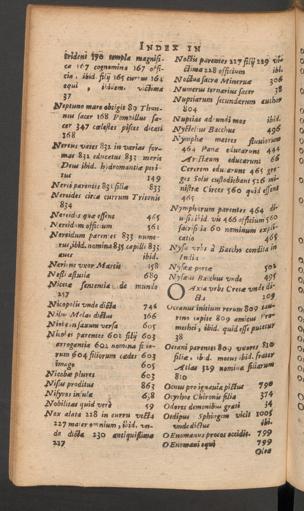 INDEX IN
trideni 190 templa magnifi-
ca 167 cognomina 167 offi-
cia, ibid. filij 165 currus 164
equi, ibidem. victima
37
Neptuno mare obtigit 89 Thun-
nus sacer 168 Pompillus sa-
cer 347 cælestes pisces dicati
168
Nereus vates 832 in varias for-
mas 832 educatus 833 meris
Deus ibid. hydromantiæ peri-
tus 149
Nerei parentes 831 filiæ 833
Nereides circa currum Tritonis
834
Nereides quæ essent 465
Nereidum officium 561
Nereidum parentes 833 nume-
rus, ibid. nomina 835 capilli 833
aues ibid.
Nerine vxor Martis 158
Nessi astutia 659
Niceæ sententia de mundo
217
Nicopolis vnde dicta 746
Nilus Melas dictus 166
Niobe in saxum versa 605
Niobes parentes 602 filij 603
arrogantia 602 nomina filio-
rum 604 filiorum cædes 603
imago 605
Niobæ plures 603
Nisus proditus 863
Nobilitas quid verè 59
Nox alata 228 in curru vecta
227 mater omnium, ibid. vn-
de dicta 230 antiquissima
227
Noctis parentes 227 filij 229 vi-
ctima 228 officium ibid.
Noctua sacra Mineruæ 306
Numerus ternarius sacer 38
Nuptiarum secundarum author
804
Nuptiæ ad undi mos ibid.
Nyctelius Bacchus 496
Nymphæ matres fluuiorum
464 Pana educarunt 444
Aristæum educarunt 66
Cererem educarunt 465 gre-
ges Solis custodiebant 526 mi-
nistræ Circes 560 quid essent
465
Nympharum parentes 464 di-
uisi, ibid. vis 466 officium 560
sacrificia 60 nominum expli-
catio 465
Nysa vrbs à Baccho condita in
India
Nysææ portæ 502
Nysæus Bacchus vnde 495
OAxia vrbs Cretæ vnde di-
cta 109
Oceanus initium rerum 809 tau-
rino capite 809 amicus Pro-
methei, ibid. quid esse putetur
38
Oceani parentes 809 vxores 810
filiæ, ibid. motus ibid. frater
Atlas 529 nomina filiarum
810
Ocnus pro ignauia pictus 790
Ocyrhoe Chironis filia 374
Odores demonibus grati 34
Oedipus Sphingem vicit 1005
vnde dictus ibid.
Oenomaus procos occidit. 799
Oenomai equi 799
Oeta